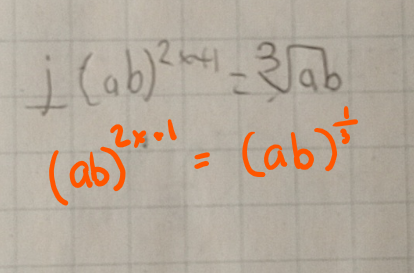 j (ab)^{2x+1} = ∛ab
(ab)^{2x+1} = (ab)^{1/3}